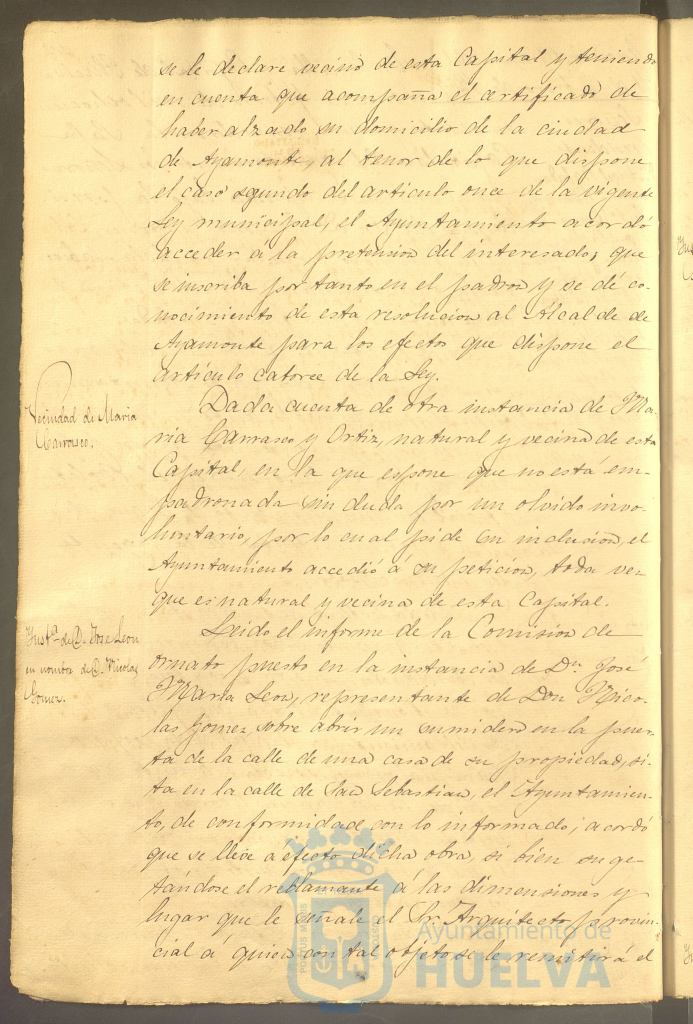 se le declare vecino de esta Capital y teniendo
en cuenta que acompaña el certificado de
haber alzado su domicilio de la ciudad
de Ayamonte, al tenor de lo que dispone
el caso segundo del artículo once de la vigente
Ley municipal, el Ayuntamiento acordó
acceder a la pretension del interesado; que
se inscriba por tanto en el padron y se dé co-
nocimiento de esta resolucion al Alcalde de
Ayamonte para los efectos que dispone el
artículo catorce de la Ley.
Vecindad de Maria
Carrasco.
Dada cuenta de otra instancia de Ma-
ria Carrasco y Ortiz, natural y vecina de esta
Capital, en la que espone que no está em-
padronada sin duda por un olvido invo-
luntario, por lo cual pide su inclusion, el
Ayuntamiento accedió á su peticion, toda vez
que es natural y vecina de esta Capital.
Inst.ª de D. Jose Leon
en nombre de D. Nicolas
Gomez.
Leido el informe de la Comision de
ornato puesto en la instancia de Dn. José
Maria Leon, representante de Don Nico-
las Gomez, sobre abrir un sumidero en la puer-
ta de la calle de una casa de su propiedad, si-
ta en la calle de San Sebastian, el Ayuntamien-
to, de conformidad con lo informado, acordó
que se lleve a efecto dicha obra, si bien suge-
tándose el reclamante á las dimensiones y
lugar que le señale el Sr. Arquitecto provin-
cial á quien con tal objeto se le remitirá el
Ayuntamiento de
HUELVA